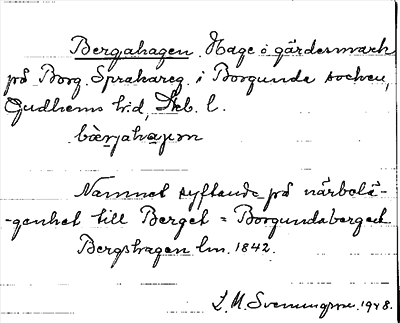 Bergahagen. Hage o gärdesmark
på Borg. Sprakareg. i Borgunda socken,
Gudhems hd, Skb. l.
bæ̀rjahaɡɐn
Namnet syftande på närbelä-
-genhet till Berget = Borgundaberget
Bergshagen lm. 1842.
L. M. Svenungsson. 1948.